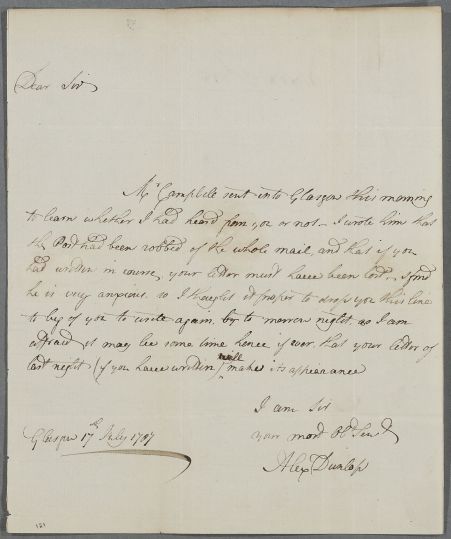 Dear Sir
Mr Campbell sent into Glasgow this morning
to learn whether I had heard from you or not – I wrote him that
the Post had been robbed of the whole mail, and that if you
had written in course your letter must have been lost, I find
he is very anxious so I thought it proper to drop you this line
to beg of you to write again by to morrow night, as I am
afraid it may be some time hence if ever, that your letter of
last night (if you have written) will make its appearance
I am Sir
your most Obt Servt
Glasgow 17th July 1787
Alex Dunlop
121